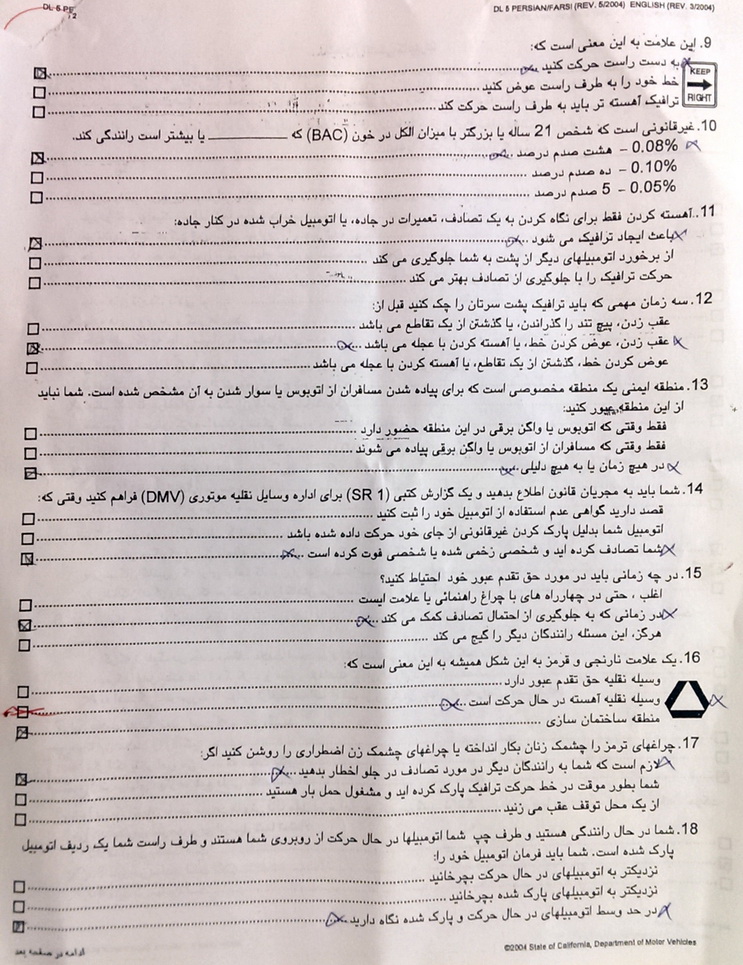 DL 5 PE
DL 5 PERSIAN/FARSI (REV. 5/2004) ENGLISH (REV. 3/2004)
9. این علامت به این معنی است که:
به دست راست حرکت کنید
KEEP
RIGHT
خط خود را به طرف راست عوض کنید
ترافیک آهسته تر باید به طرف راست حرکت کند
10. غیرقانونی است که شخص 21 ساله یا بزرگتر با میزان الکل در خون (BAC) که __________ یا بیشتر است رانندگی کند.
0.08% – هشت صدم درصد
0.10% – ده صدم درصد
0.05% – 5 صدم درصد
11. آهسته کردن فقط برای نگاه کردن به یک تصادف، تعمیرات در جاده، یا اتومبیل خراب شده در کنار جاده:
باعث ایجاد ترافیک می شود
از برخورد اتومبیلهای دیگر از پشت به شما جلوگیری می کند
حرکت ترافیک را با جلوگیری از تصادف بهتر می کند
12. سه زمان مهمی که باید ترافیک پشت سرتان را چک کنید قبل از:
عقب زدن، پیچ تند را گذراندن، یا گذشتن از یک تقاطع می باشد
عقب زدن، عوض کردن خط، یا آهسته کردن با عجله می باشد
عوض کردن خط، گذشتن از یک تقاطع، یا آهسته کردن با عجله می باشد
13. منطقه ایمنی یک منطقه مخصوصی است که برای پیاده شدن مسافران از اتوبوس یا سوار شدن به آن مشخص شده است. شما نباید
از این منطقه عبور کنید:
فقط وقتی که اتوبوس یا واگن برقی در این منطقه حضور دارد
فقط وقتی که مسافران از اتوبوس یا واگن برقی پیاده می شوند
در هیچ زمان یا به هیچ دلیلی
14. شما باید به مجریان قانون اطلاع بدهید و یک گزارش کتبی (SR 1) برای اداره وسایل نقلیه موتوری (DMV) فراهم کنید وقتی که:
قصد دارید گواهی عدم استفاده از اتومبیل خود را ثبت کنید
اتومبیل شما بدلیل پارک کردن غیرقانونی از جای خود حرکت داده شده باشد
شما تصادف کرده اید و شخصی زخمی شده یا شخصی فوت کرده است
15. در چه زمانی باید در مورد حق تقدم عبور خود احتیاط کنید؟
اغلب ، حتی در چهارراه های با چراغ راهنمائی یا علامت ایست
در زمانی که به جلوگیری از احتمال تصادف کمک می کند
هرگز، این مسئله رانندگان دیگر را گیج می کند
16. یک علامت نارنجی و قرمز به این شکل همیشه به این معنی است که:
وسیله نقلیه حق تقدم عبور دارد
وسیله نقلیه آهسته در حال حرکت است
منطقه ساختمان سازی
17. چراغهای ترمز را چشمک زنان بکار انداخته یا چراغهای چشمک زن اضطراری را روشن کنید اگر:
لازم است که شما به رانندگان دیگر در مورد تصادف در جلو اخطار بدهید
شما بطور موقت در خط حرکت ترافیک پارک کرده اید و مشغول حمل بار هستید
از یک محل توقف عقب می زنید
18. شما در حال رانندگی هستید و طرف چپ شما اتومبیلها در حال حرکت از روبروی شما هستند و طرف راست شما یک ردیف اتومبیل
پارک شده است. شما باید فرمان اتومبیل خود را:
نزدیکتر به اتومبیلهای در حال حرکت بچرخانید
نزدیکتر به اتومبیلهای پارک شده بچرخانید
در حد وسط اتومبیلهای در حال حرکت و پارک شده نگاه دارید
ادامه در صفحه بعد
©2004 State of California, Department of Motor Vehicles